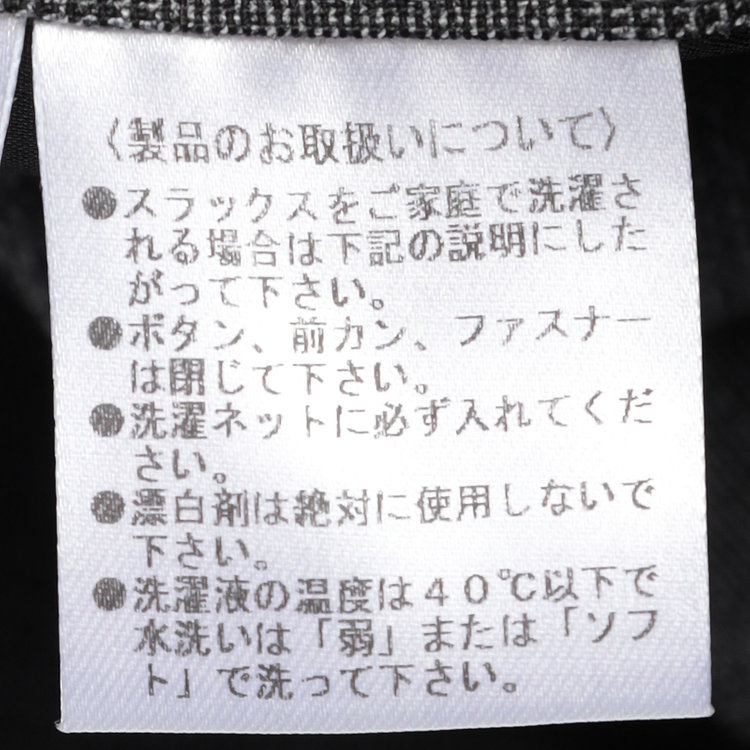 〈製品のお取扱いについて〉
●スラックスをご家庭で洗濯さ
れる場合は下記の説明にした
がって下さい。
●ボタン、前カン、ファスナー
は閉じて下さい。
●洗濯ネットに必ず入れてくだ
さい。
●漂白剤は絶対に使用しないで
下さい。
●洗濯液の温度は40℃以下で
水洗いは「弱」または「ソフ
ト」で洗って下さい。